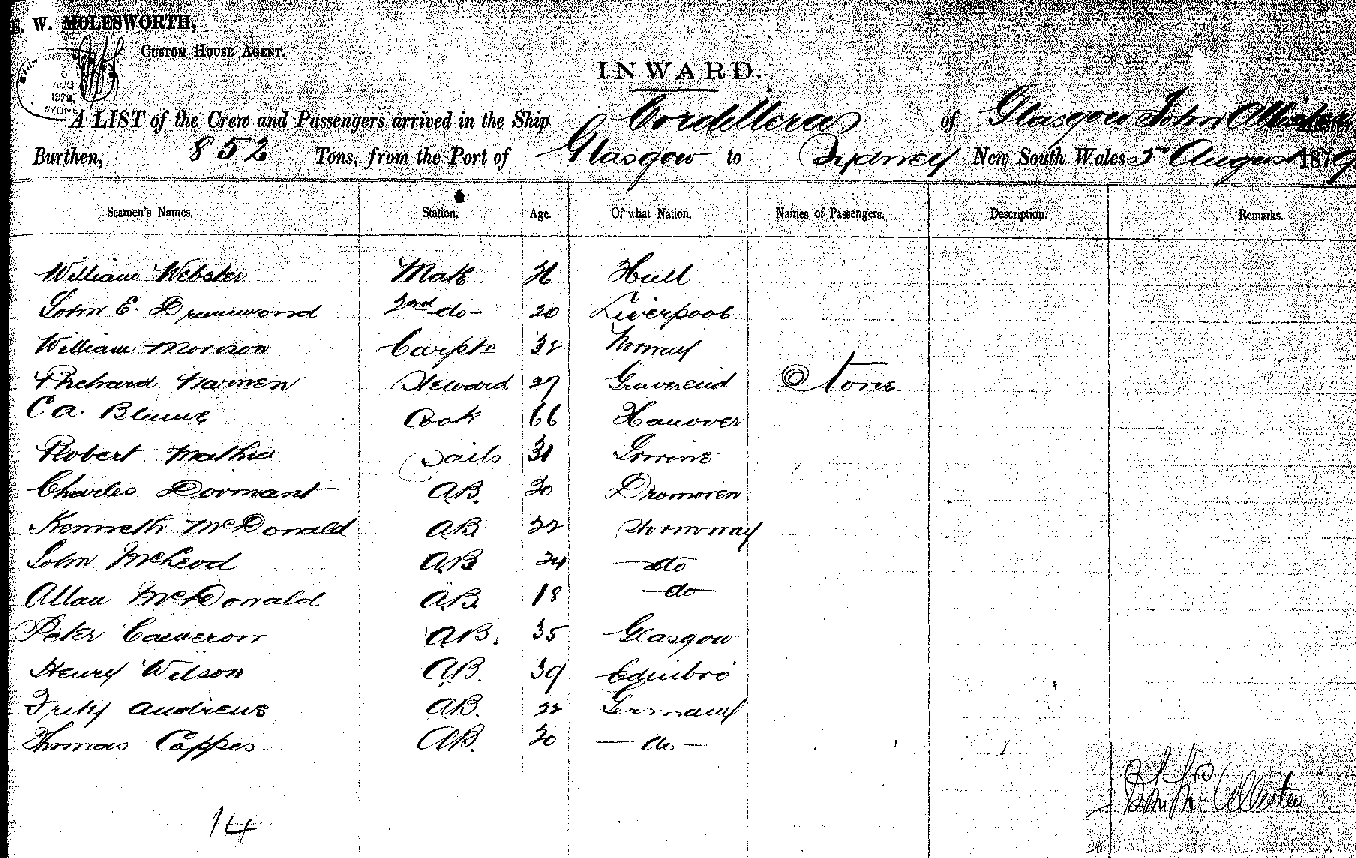 W. MOLESWORTH,
CUSTOM HOUSE AGENT.
1879
INWARD.
A LIST of the Crew and Passengers arrived in the Ship Cordillera of Glasgow John
Burthen, 852 Tons, from the Port of Glasgow to Sydney New South Wales 5th August 1879
Seamen's Names. Station. Age. Of what Nation. Names of Passengers. Description. Remarks.
William Webster Mate Hull
John E. Drummond 2nd do 20 Liverpool
William Morison Carpts Norway
Richard 27 Gravesend
Steward
C a. Cook 66 Hanover
Robert Mathie Sails 31
Charles Dormant A.B. 30 Dromoren
Kenneth McDonald A.B. 22 Stornoway
John McLeod A.B. 24 do
Allan McDonald A.B. 18 do
Peter Cameron A.B. 35 Glasgow
Henry Wilson A.B. 39 Edinbro
Fritz Andrews A.B. 22 Germany
Thomas Cappes A.B. 30 do
14